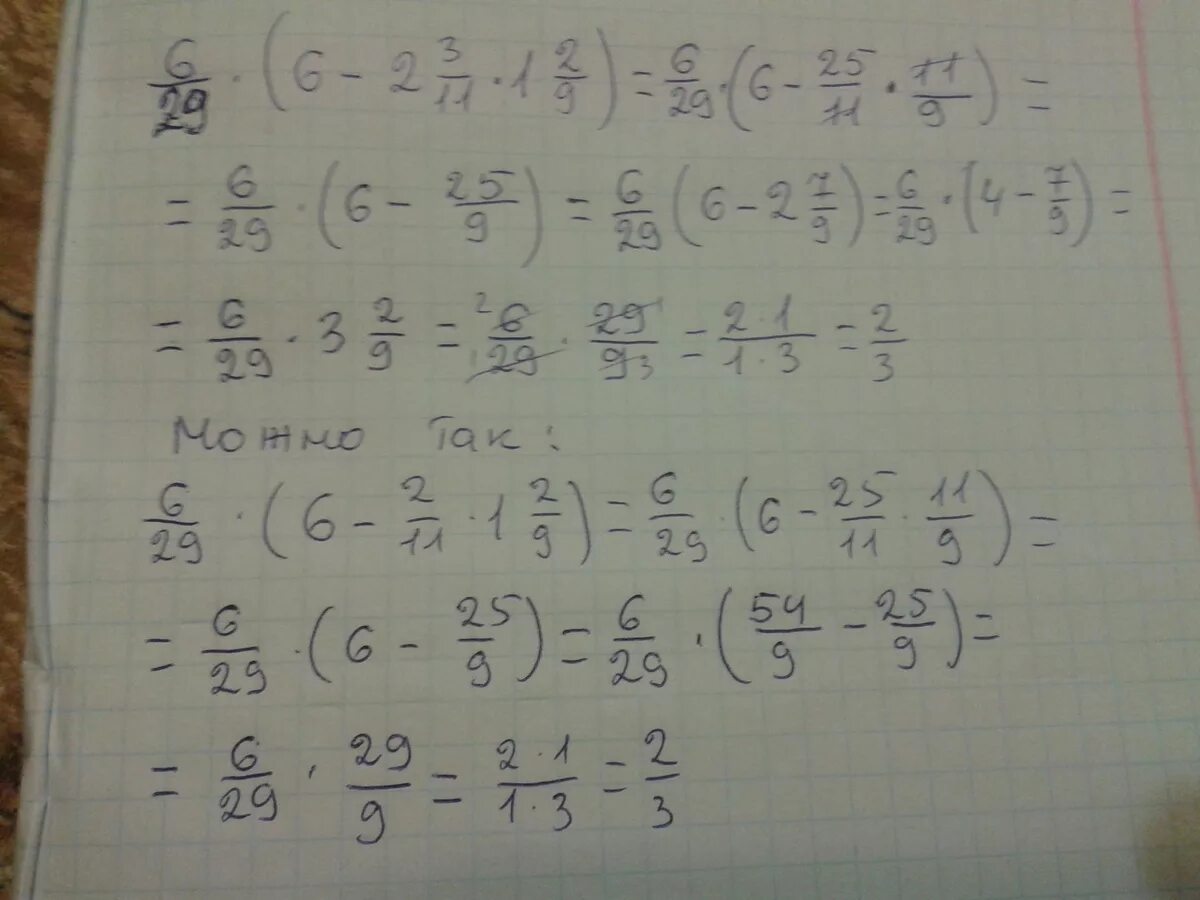 6/29 · (6 - 2 3/11 · 1 2/9) = 6/29 · (6 - 25/11 · 11/9) =
= 6/29 · (6 - 25/9) = 6/29 (6 - 2 7/9) = 6/29 · (4 - 7/9) =
= 6/29 · 3 2/9 = 2 6/1 29 · 29 1/9 3 = 2·1/1·3 = 2/3
Можно так:
6/29 · (6 - 2/11 · 1 2/9) = 6/29 · (6 - 25/11 · 11/9) =
= 6/29 · (6 - 25/9) = 6/29 · (54/9 - 25/9) =
= 6/29 · 29/9 = 2·1/1·3 = 2/3